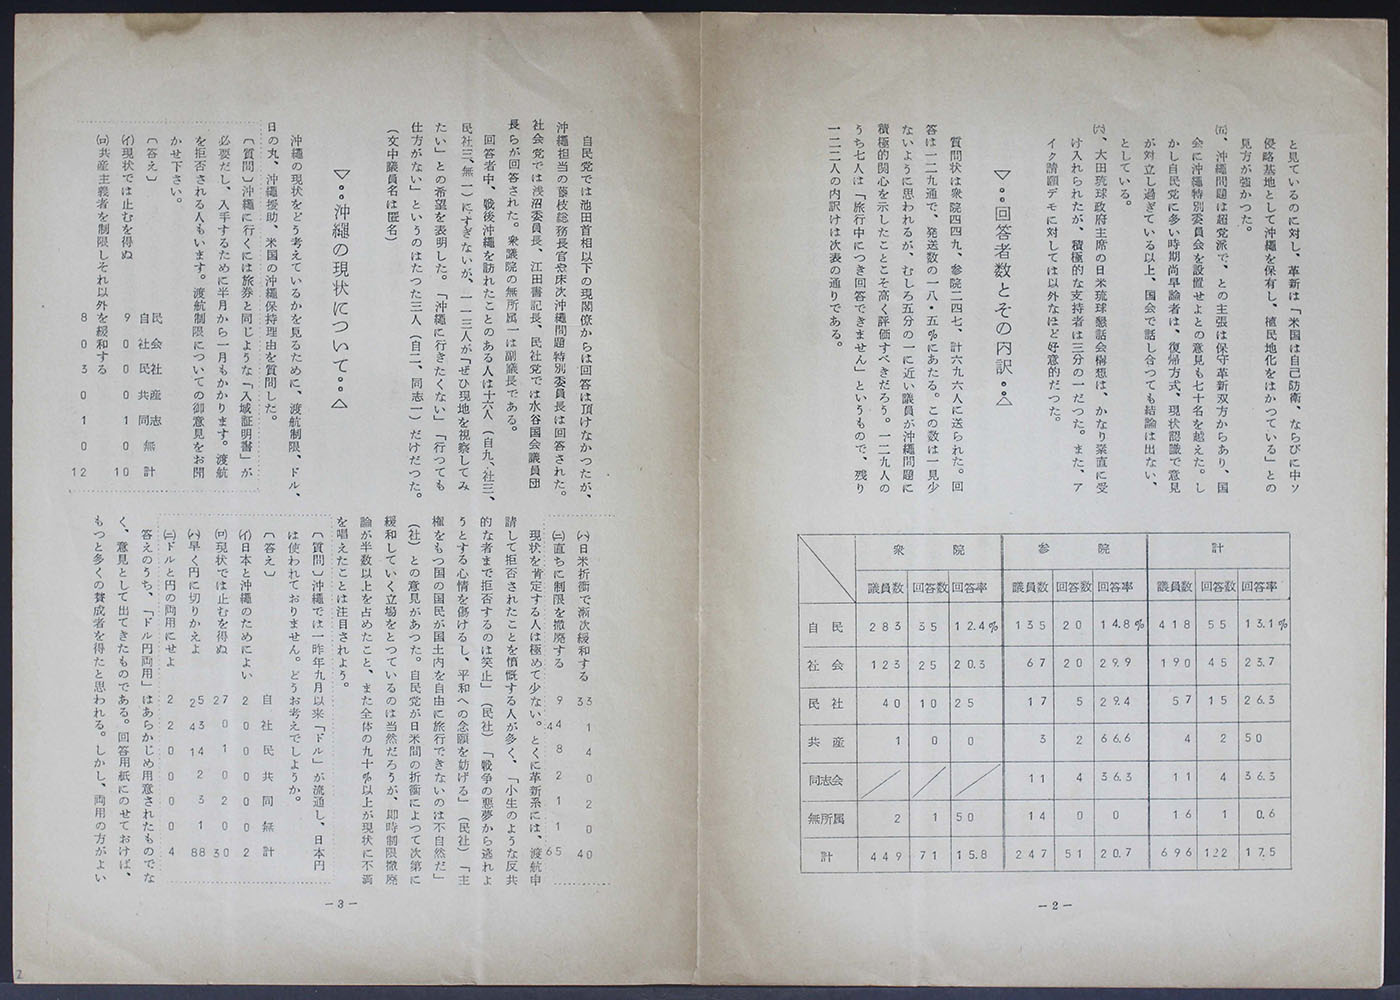 と見ているのに対し、革新は「米国は自己防衛、ならびに中ソ
侵略基地として沖縄を保有し、植民地化をはかつている」との
見方が強かつた。
㈤、沖縄問題は超党派で、との主張は保守革新双方からあり、国
会に沖縄特別委員会を設置せよとの意見も七十名を越えた。し
かし自民党に多い時期尚早論者は、復帰方式、現状認識で意見
が対立し過ぎている以上、国会で話し合つても結論は出ない、
としている。
㈥、大田琉球政府主席の日米琉球懇話会構想は、かなり素直に受
け入れられたが、積極的な支持者は三分の一だつた。また、ア
イク請願デモに対しては以外なほど好意的だつた。
▽‥回答者数とその内訳‥△
質問状は衆院四四九、参院二四七、計六九六人に送られた。回
答は一二九通で、発送数の一八・五%にあたる。この数は一見少
ないように思われるが、むしろ五分の一に近い議員が沖縄問題に
積極的関心を示したことこそ高く評価すべきだろう。一二九人の
うち七人は「旅行中につき回答できません」というもので、残り
一二二人の内訳けは次表の通りである。
衆院 参院 計
議員数 回答数 回答率 議員数 回答数 回答率 議員数 回答数 回答率
自民 283 35 12.4% 135 20 14.8% 418 55 13.1%
社会 123 25 20.3 67 20 29.9 190 45 23.7
民社 40 10 25 17 5 29.4 57 15 26.3
共産 1 0 0 3 2 66.6 4 2 50
同志会 11 4 36.3 11 4 36.3
無所属 2 1 50 14 0 0 16 1 0.6
計 449 71 15.8 247 51 20.7 696 122 17.5
－2－
自民党では池田首相以下の現閣僚からは回答は頂けなかつたが、
沖縄担当の藤枝総務長官や床次沖縄問題特別委員長は回答された。
社会党では浅沼委員長、江田書記長、民社党では水谷国会議員団
長らが回答された。衆議院の無所属一は副議長である。
回答者中、戦後沖縄を訪れたことのある人は十六人（自九、社三、
民社三、無一）にすぎないが、一一三人が「ぜひ現地を視察してみ
たい」との希望を表明した。「沖縄に行きたくない」「行つても
仕方がない」というのはたつた三人（自二、同志一）だけだつた。
（文中議員名は匿名）
▽‥沖縄の現状について‥△
沖縄の現状をどう考えているかを見るために、渡航制限、ドル、
日の丸、沖縄援助、米国の沖縄保持理由を質問した。
〔質問〕沖縄に行くには旅券と同じような「入域証明書」が
必要だし、入手するために半月から一月もかかります。渡航
を拒否される人もいます。渡航制限についての御意見をお聞
かせ下さい。
〔答え〕
自民 社会 民社 共産 同志 無 計
㈑現状では止むを得ぬ 9 0 0 0 1 0 10
㈺共産主義者を制限しそれ以外を緩和する 8 0 3 0 1 0 12
㈩日米折衝で漸次緩和する 33 1 4 0 2 0 40
㈡直ちに制限を撤廃する 9 44 8 2 1 1 65
現状を肯定する人は極めて少ない。とくに革新系には、渡航申
請して拒否されたことを憤慨する人が多く、「小生のような反共
的な者まで拒否するのは笑止」（民社）「戦争の悪夢から逃れよ
うとする心情を傷けるし、平和への念願を妨げる」（民社）「主
権をもつ国の国民が国土内を自由に旅行できないのは不自然だ」
（社）との意見があつた。自民党が日米間の折衝によつて次第に
緩和していく立場をとつているのは当然だろうが、即時制限撤廃
論が半数以上を占めたこと、また全体の九十%以上が現状に不満
を唱えたことは注目されよう。
〔質問〕沖縄では一昨年九月以来「ドル」が流通し、日本円
は使われておりません。どうお考えでしようか。
〔答え〕
自 社 民 共 同 無 計
(イ)日本と沖縄のためによい 2 0 0 0 0 0 2
(ロ)現状では止むを得ぬ 27 0 1 0 2 0 30
(ハ)早く円に切りかえよ 25 43 14 2 3 1 88
(ニ)ドルと円の両用にせよ 2 2 0 0 0 0 4
答えのうち、「ドル円両用」はあらかじめ用意されたものでな
く、意見として出てきたものである。回答用紙にのせておけば、
もつと多くの賛成者を得たと思われる。しかし、両用の方がよい
－3－
2